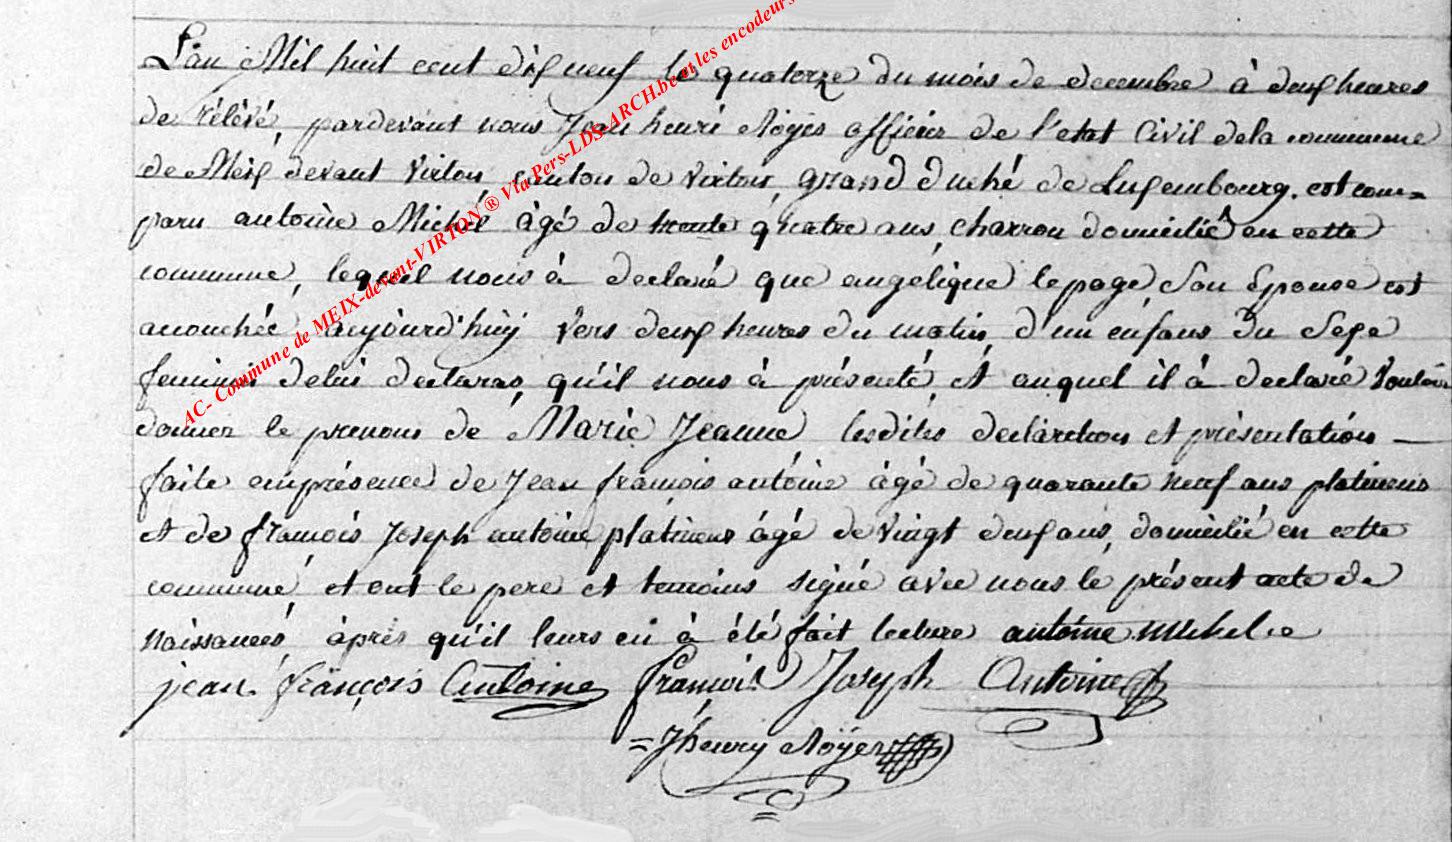 L'an Mil huit cent dix neuf le quatorze du mois de decembre à deux heures
de rélévé, pardevant nous Jean henri Noÿés officier de l'etat Civil dela commune
de Meix devant Virton, canton de Virton, grand duché de Luxembourg. est com=
paru antoine Michel âgé de trente quatre ans, charron domicilié en cette
commune, lequel nous à declaré que angélique lepage Son Epouse est
accouchée, aujourd'huÿ vers deux heures du matin, d'un enfans du Sexe
feminin delui declarans, qu'il nous à présenté, et auquel il à declaré Vouloir
donner le prenom de Marie Jeanne lesdites declaration et présentation —
faite enprésence de Jean françois antoine âgé de quarante neuf ans platineur
et de françois Joseph antoine platineur âgé de Vingt deux ans, domicilié en cette
commune et ont le pere et temoins signé avec nous le présent acte de
naissances, àprès qu'il leurs en à été fait lecture antoine Michel
jean françois Antoine françois Joseph Antoine
= Jhenry Noÿer
AC- Commune de MEIX-devant-VIRTON ® Via Pers-LDS-ARCH.be et les encodeurs